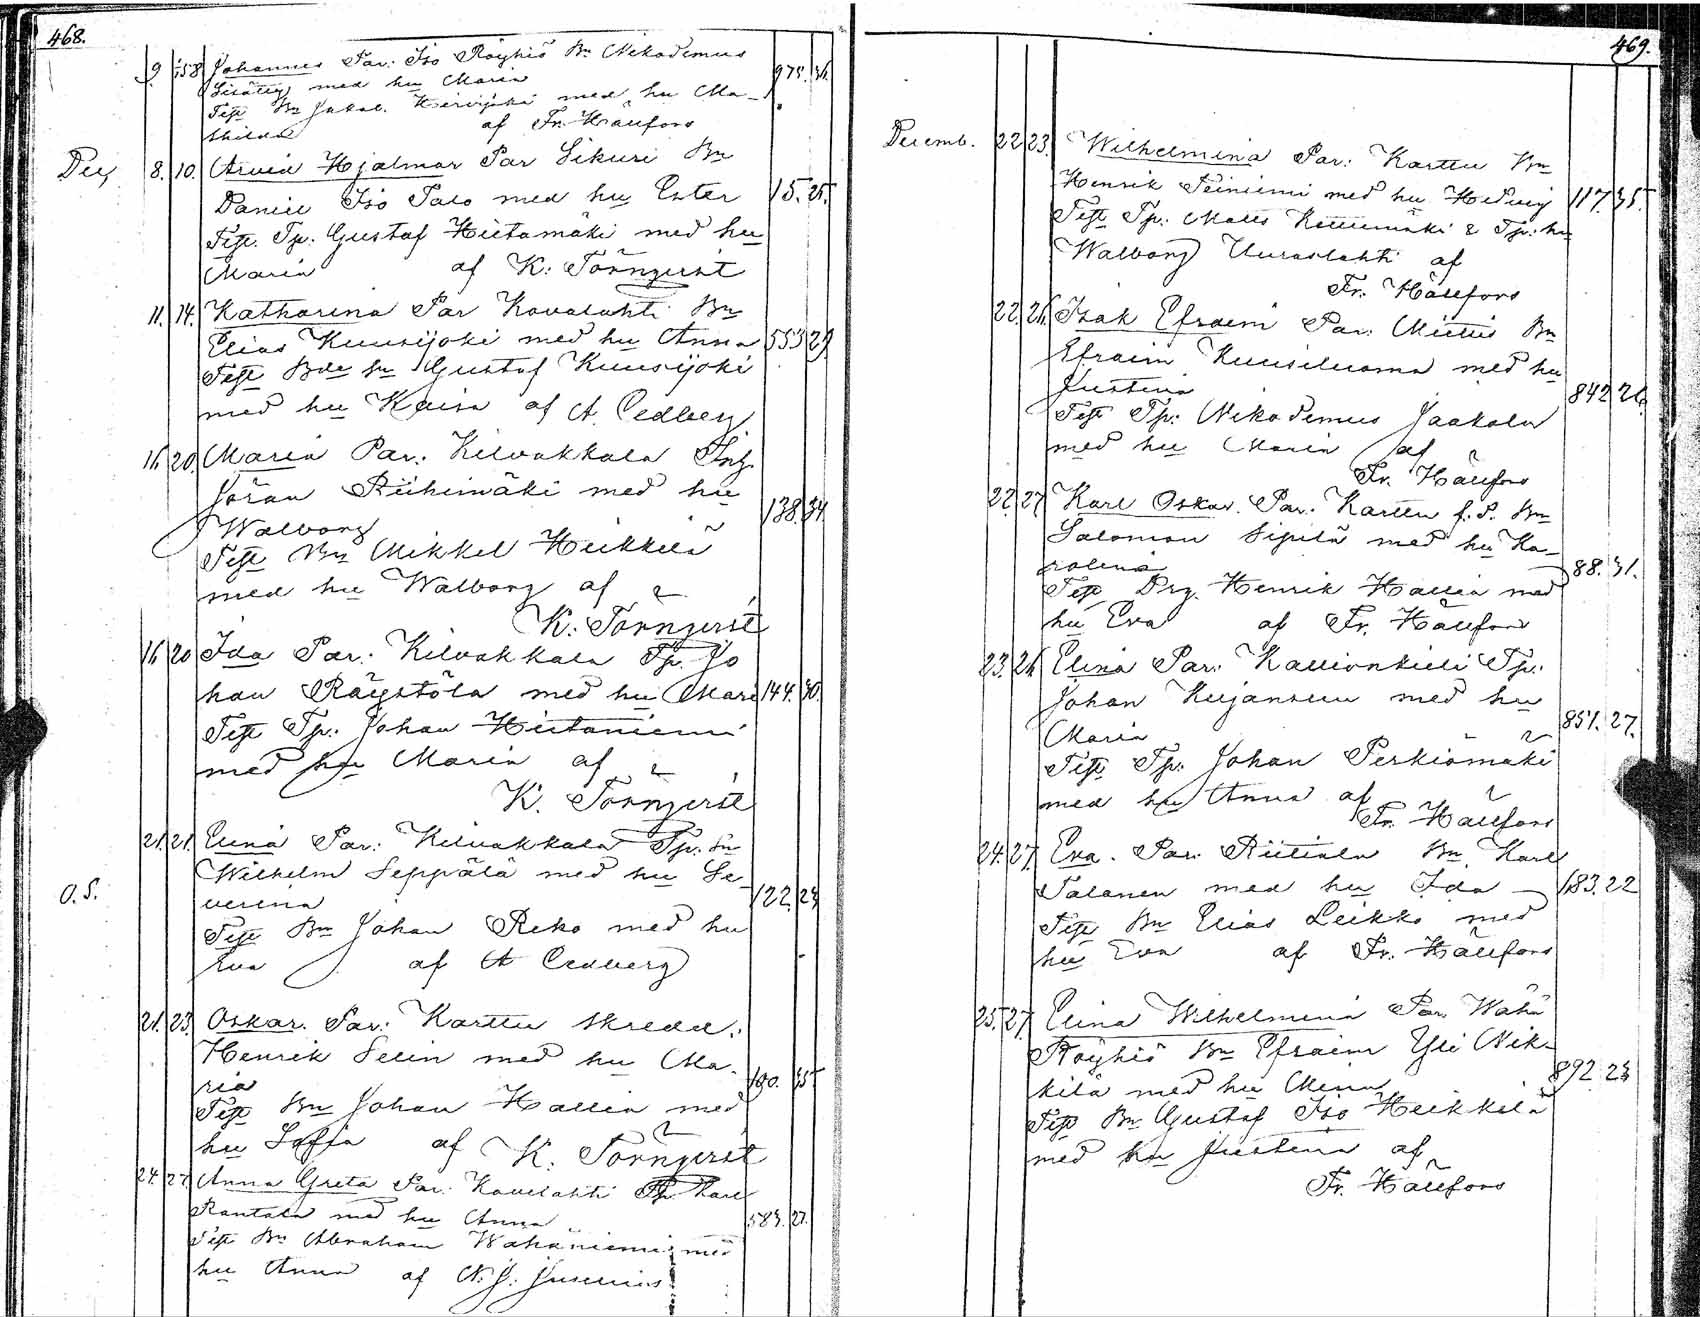 468.
9 Johannes Par: Iso Röyhiö Bn Nikodemus 975. 36.
med hu Maria
Test Bn Jakob. Hirvijoki med hu Ma-
thilda af Fr. Hällfors
Dec 8. 10. Arvid Hjalmar Par Sikuri Bn
Daniel Iso Talo med hu Ester 15. 25.
Test. Tp. Gustaf Hietamäki med hu
Maria af K: Törnqvist
11. 14. Katharina Par Kovalahti Bn
Elias Kuusijoki med hu Anna 553 29
Test Bde sn Gustaf Kuusijoki
med hu Kaisa af A. Cedberg
16 20. Maria Par. Kilvakkala Inh.
Jöran Riihimäki med hu
Walborg 138. 34.
Test Bn Mikkel Heikkilä
med hu Walborg af
K: Törnqvist
16 20 Ida Par: Kilvakkala Tp. Jo
han Räystölä med hu Mari 144. 30.
Test Tp: Johan Hietaniemi
med hu Maria af
K. Törnqvist
21. 21. Elina Par: Kilvakkala Tp. Sn
Wilhelm Seppälä med hu Se-
O.S. verina 122. 23
Test Bn Johan Reko med hu
Eva af A Cedberg
21. 23. Oskar. Par: Karttu skredd.
Henrik Selin med hu Ma-
ria 100. 35
Test Bn Johan Hallia med
hu Soffia af K. Törnqvist
24. 27. Anna Greta Par. Kovelahti Tp Karl
Rantala med hu Anna 583. 27.
Test Bn Abraham Wähäniemi med
hu Anna af N. J. Juselius
469.
Decemb. 22 23. Wilhelmina Par: Karttu Bn
Henrik Peiniemi med hu Hedvig 117. 35.
Test Tp. Matts Kettumäki & Tp: hu
Walborg Uuraslahti af
Fr. Hällfors
22. 26. Isak Efraim Par: Miettis Bn
Efraim Kuusiluoma med hu
Justina 842 26.
Test Tp: Nikodemus Jaakola
med hu Maria af
Fr. Hällfors
22. 27 Karl Oskar. Par: Karttu f.d. Bn
Salomon Sipilä med hu Ka-
rolina 88. 31.
Test Drg. Henrik Hallia med
hu Eva af Fr. Hällfors
23. 26. Elina Par: Kallionkieli Tp.
Johan Kujansuu med hu
Maria 851. 27.
Test Tp: Johan Perkiömäki
med hu Anna af
Fr. Hällfors
24. 27. Eva. Par. Riitiala Bn Karl
Talonen med hu Ida 183. 22
Test Bn Elias Leikko med
hu Eva af Fr. Hällfors
25. 27 Elina Wilhelmina Par. Wähä
Röyhiö Bn Efraim Yli Nik-
kilä med hu Mina 892. 23
Test Bn Gustaf Iso Heikkilä
med hu Justina af
Fr. Hällfors